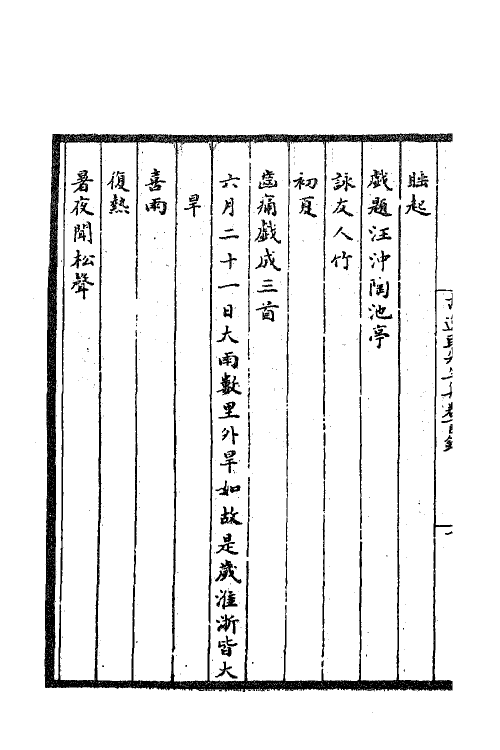 睡起
戲題汪沖陶池亭
詠友人竹
初夏
齒痛戲成三首
六月二十一日大雨數里外旱如故是歲淮浙皆大
旱
喜雨
復熱
暑夜聞松聲